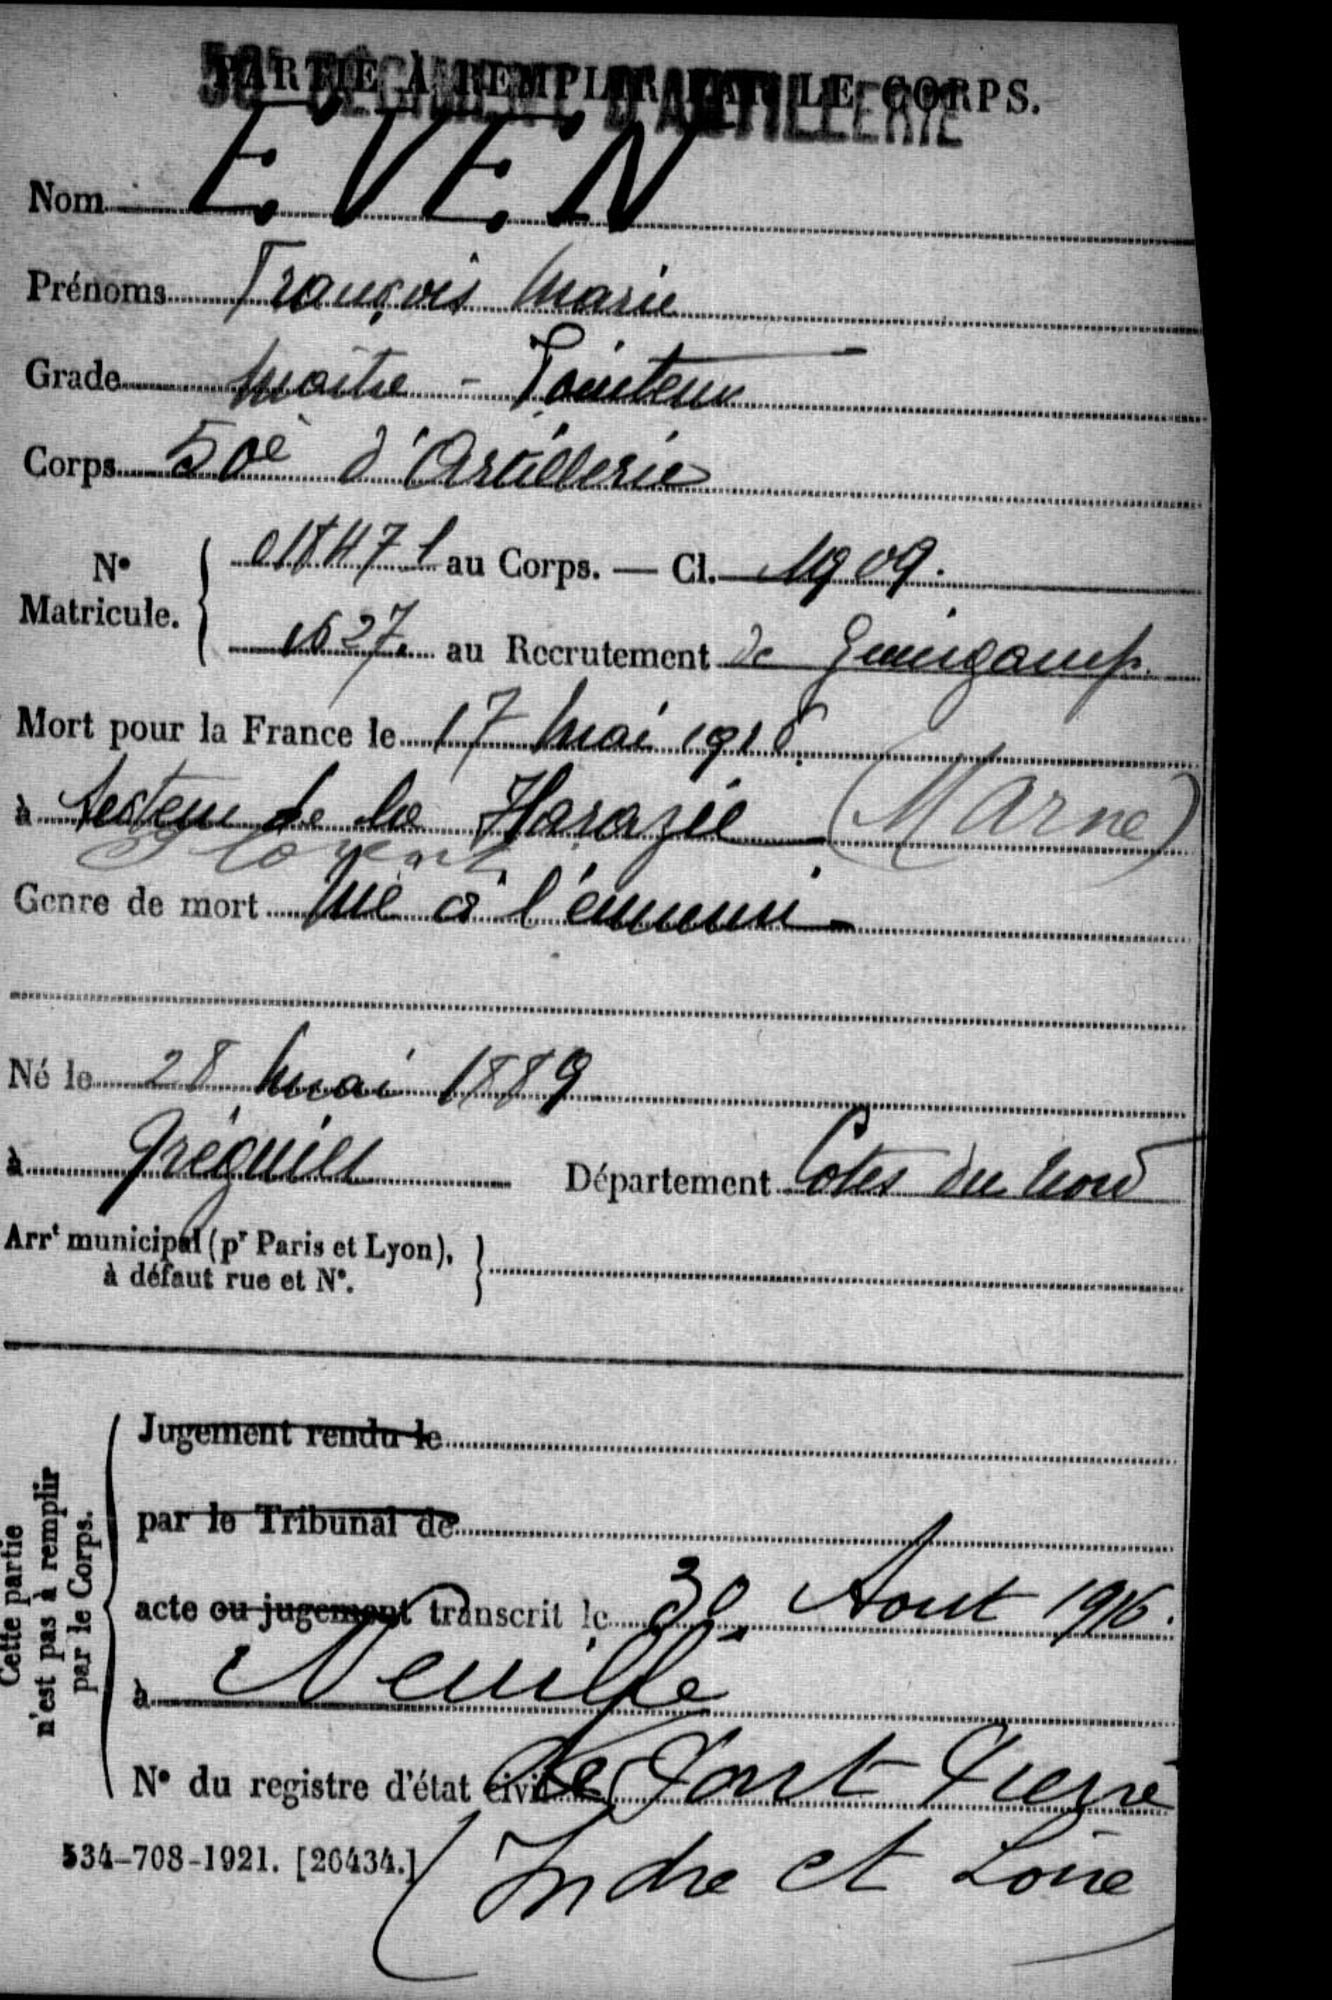 PARTIE À REMPLIR PAR LE CORPS.
50e RÉGIMENT D'ARTILLERIE
Nom EVEN
Prénoms François Marie
Grade Maître - Pointeur
Corps 50e d'Artillerie
No Matricule. au Corps. — Cl. 1909.
1627. au Recrutement de Guingamp.
Mort pour la France le 17 Mai 1916.
à Secteur de la Harazée (Marne)
Florent
Genre de mort Tué à l'ennemi -
Né le 28 Mai 1889
à Tréguier Département Côtes du Nord
Arrt municipal (pr Paris et Lyon),
à défaut rue et No.
Cette partie
n'est pas à remplir
par le Corps.
Jugement rendu le
par le Tribunal de
acte ou jugement transcrit le 30 Aout 1916.
à Neuillé
No du registre d'état civil de Pont Pierre
534-708-1921. [26434.] (Indre et Loire